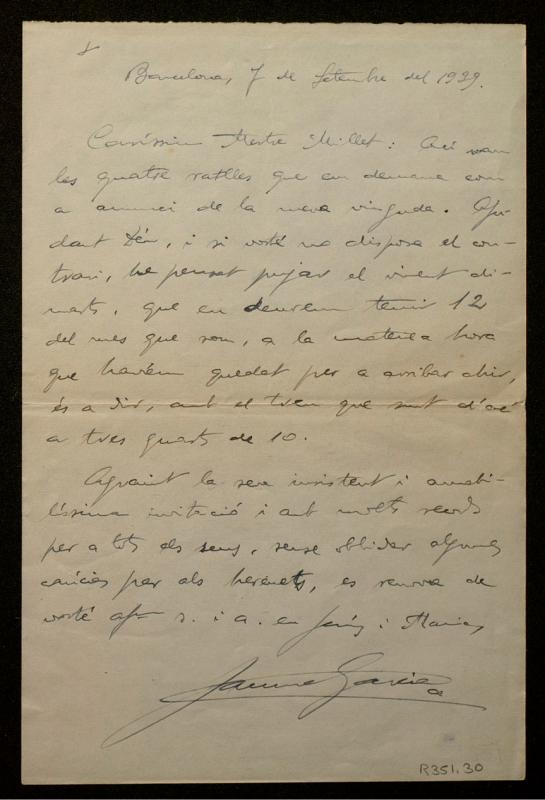 Barcelona, 7 de Setembre del 1939.
Caríssim Mestre Millet: Ací van
les quatre ratlles que em demana com
a anunci de la meva vinguda. Aju-
dant Déu, i si vosté no disposa el con-
trari, he pensat pujar el vinent di-
marts, que en deurem tenir 12
del mes que som, a la mateixa hora
que havíem quedat per a arribar ahir,
és a dir, amb el tren que surt d'ací
a tres quarts de 10.
Agraint la seva insistent i amabi-
líssima invitació i amb molts records
per a tots els seus, sense oblidar algunes
carícies per als hereuets, es renova de
vosté afm s. i a. en Jesús i Maria,
Jaume Garcia
R351.30